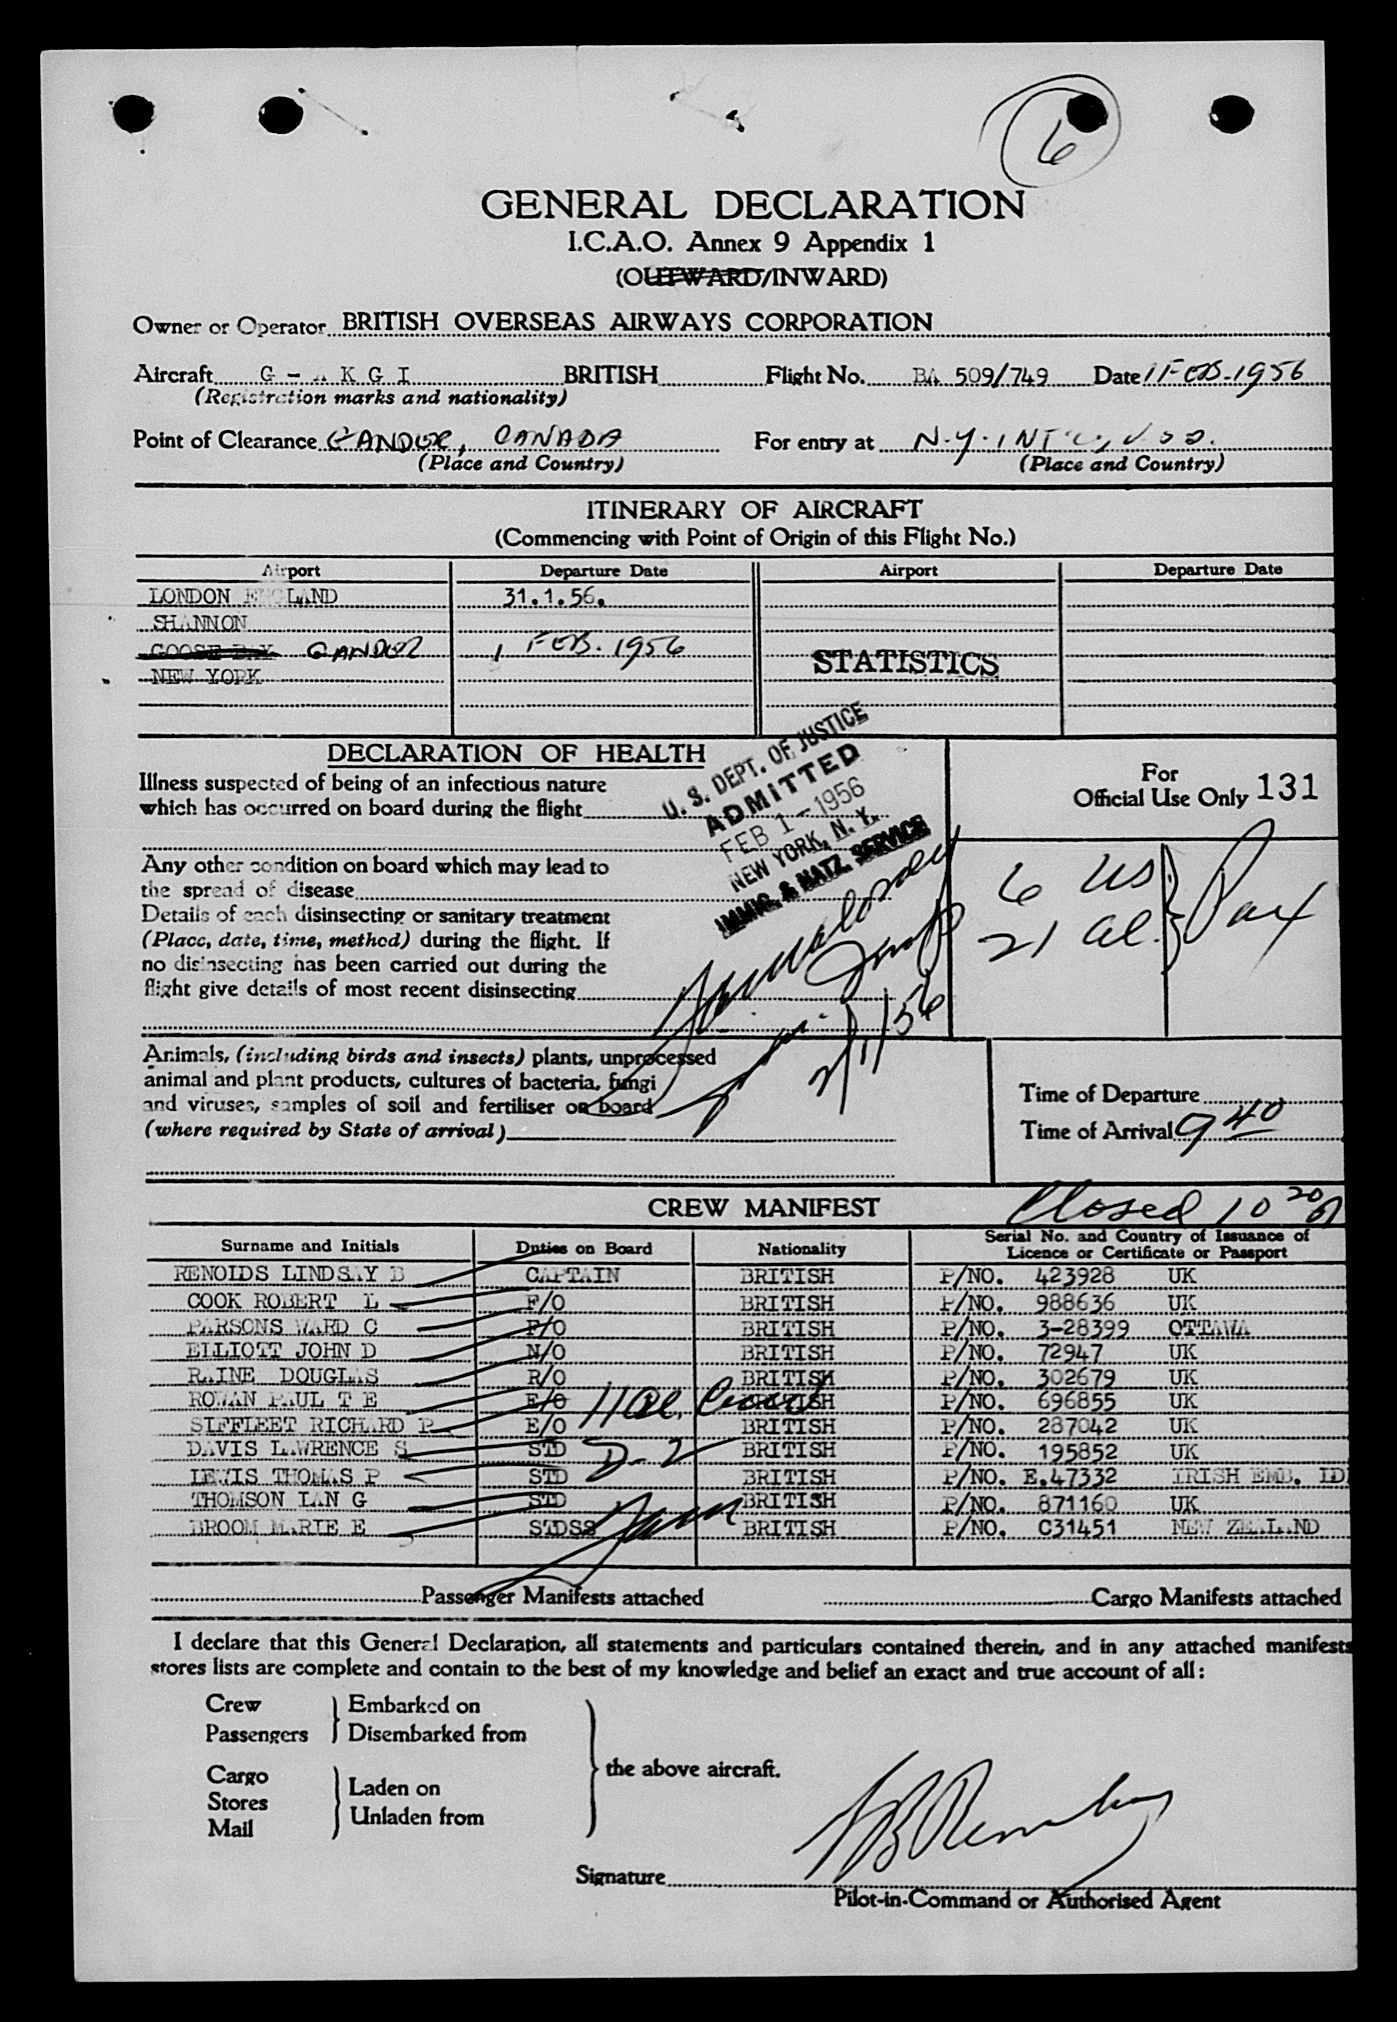 6
GENERAL DECLARATION
I.C.A.O. Annex 9 Appendix 1
(OUTWARD/INWARD)
Owner or Operator BRITISH OVERSEAS AIRWAYS CORPORATION
Aircraft G - A K G I BRITISH Flight No. BA 509/749 Date 1 FEB. 1956
(Registration marks and nationality)
Point of Clearance GANDER, CANADA For entry at N.Y. INT'L,
(Place and Country) (Place and Country)
ITINERARY OF AIRCRAFT
(Commencing with Point of Origin of this Flight No.)
Airport Departure Date Airport Departure Date
LONDON ENGLAND 31.1.56.
SHANNON
GOOSE BAY GANDER 1 FEB. 1956
STATISTICS
NEW YORK
DECLARATION OF HEALTH
Illness suspected of being of an infectious nature
which has occurred on board during the flight
Any other condition on board which may lead to
the spread of disease
Details of each disinsecting or sanitary treatment
(Place, date, time, method) during the flight. If
no disinsecting has been carried out during the
flight give details of most recent disinsecting
U. S. DEPT. OF JUSTICE
ADMITTED
FEB 1 - 1956
NEW YORK, N. Y.
IMMIG. & NATZ. SERVICE
2/1/56
For
Official Use Only 131
6 US
21 al. } Pax
Animals, (including birds and insects) plants, unprocessed
animal and plant products, cultures of bacteria, fungi
and viruses, samples of soil and fertiliser on board
(where required by State of arrival)
Time of Departure
Time of Arrival 9 40
CREW MANIFEST Closed 10 20
Surname and Initials Duties on Board Nationality Serial No. and Country of Issuance of
Licence or Certificate or Passport
RENOLDS LINDSAY B CAPTAIN BRITISH P/NO. 423928 UK
COOK ROBERT L F/O BRITISH P/NO. 988636 UK
PARSONS WARD C F/O BRITISH P/NO. 3-28399 OTTAWA
ELLIOTT JOHN D N/O BRITISH P/NO. 72947 UK
RAINE DOUGLAS R/O BRITISH P/NO. 302679 UK
ROWAN PAUL T E E/O BRITISH P/NO. 696855 UK
11 al.
SIFFLEET RICHARD P E/O BRITISH P/NO. 287042 UK
DAVIS LAWRENCE S STD BRITISH P/NO. 195852 UK
D-2
LEWIS THOMAS P STD BRITISH P/NO. E.47332 IRISH EMB. LD
THOMSON IAN G STD BRITISH P/NO. 871160 UK
BROOM MARIE E STDSS BRITISH P/NO. C31451 NEW ZEALAND
Passenger Manifests attached Cargo Manifests attached
I declare that this General Declaration, all statements and particulars contained therein, and in any attached manifests
stores lists are complete and contain to the best of my knowledge and belief an exact and true account of all:
Crew
Passengers } Embarked on
Disembarked from
Cargo
Stores
Mail } Laden on
Unladen from
} the above aircraft.
Signature
Pilot-in-Command or Authorised Agent